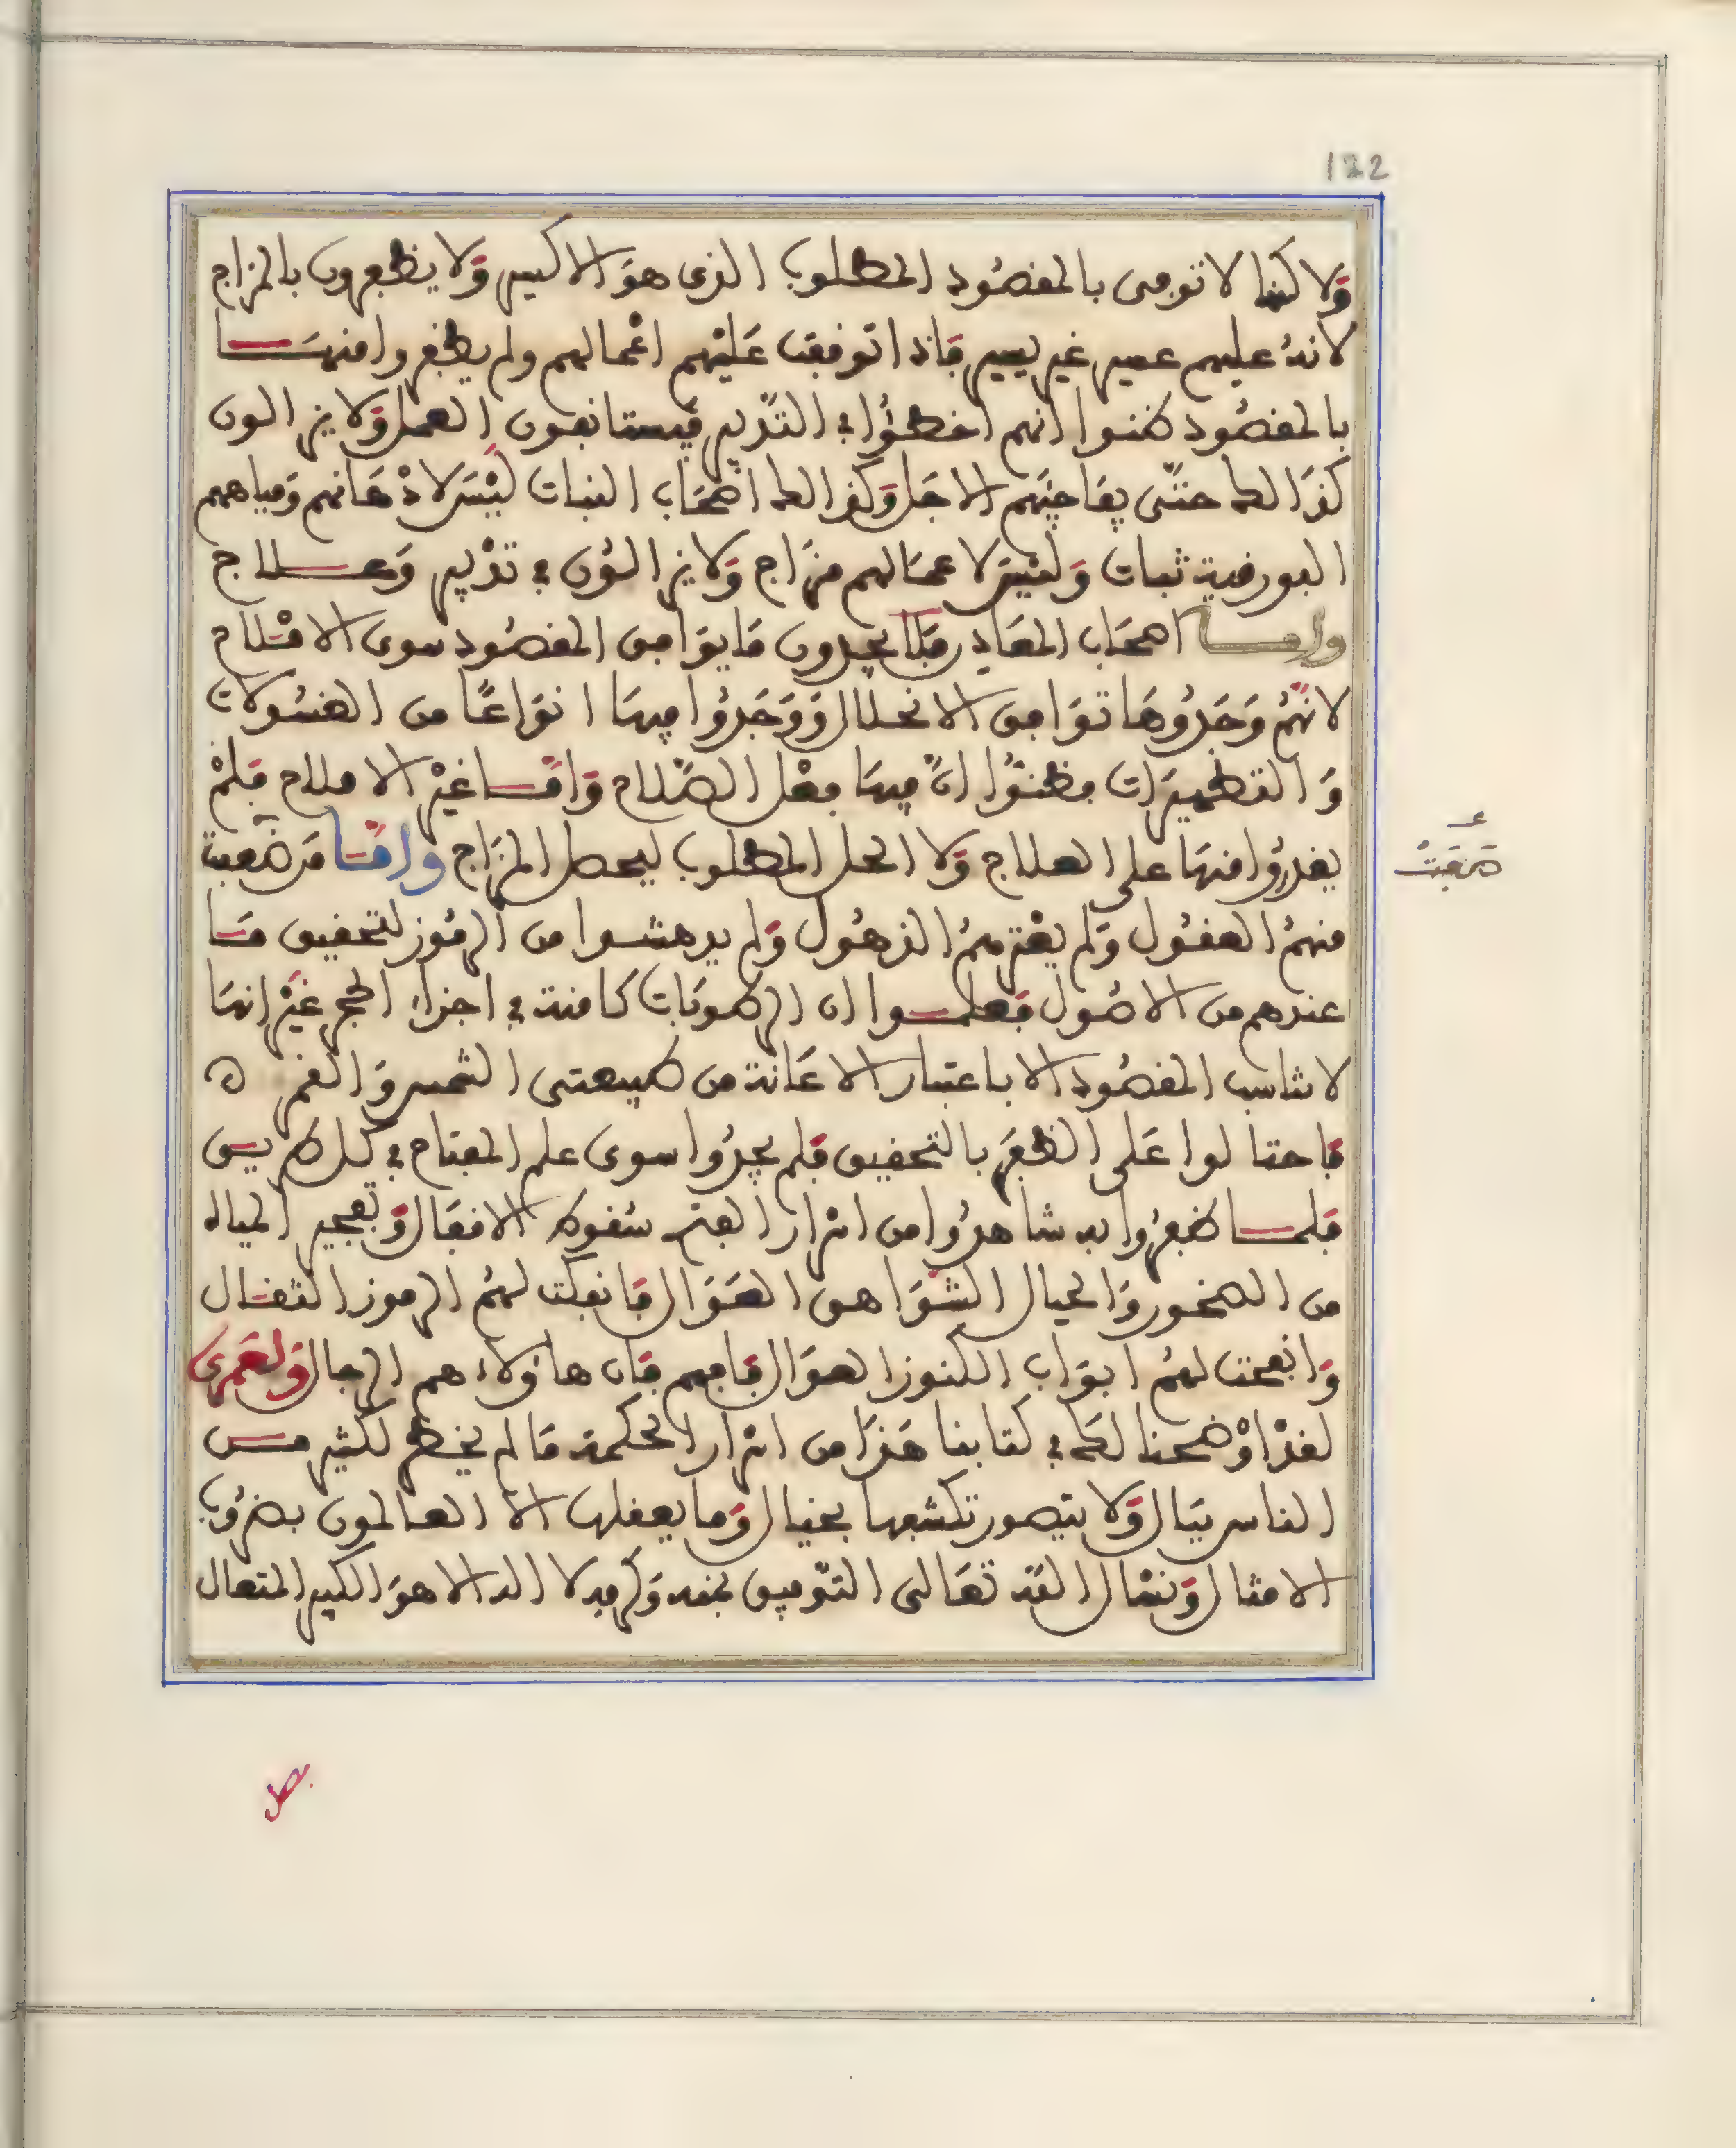 122
ولاكنها لا توفى بالمقصود المطلوب الذى هو الاكسير ولا يظفرون بالمزاج
لانه عليهم عسير غير يسير فاذا توقفت عليهم اعمالهم ولم يظفروا منها
بالمقصود ظنوا انهم اخطئوا في التدبير فيستانفون العمل ولا يزالون
كذالك حتى يفاجيهم الاجل وكذالك اصحاب النبات ليس لادهانهم ومياههم
البورقية ثبات وليس لاعمالهم مزاج ولا يزالون في تدبير وعلاج
واما اصحاب المعادن فلا يجدون ما يوافق المقصود سوى الاملاح
لانهم وجدوها توافق الانحلال ووجدوا فيها انواعا من الغسولات
والتطهيرات فظنوا ان فيها فعل الصلاح واما غير الاملاح فلم
يقدروا منها على العلاج ولا الحل المطلوب ليحصل المزاج واما من صعبت
صفت
منهم العقول ولم يعترهم الذهول ولم يدهشوا من الرموز لتحقيق ما
عندهم من الاصول فعلموا ان الرطوبات كامنة في اجزاء الحجر غير انها
لا تناسب المقصود الا باعتبار الاعانة من طبيعتى الشمس والقمر ه
فاحتالوا على الظفر بالتحقيق فلم يجدوا سوى علم المفتاح في كل طريق
فلما ظفروا به شاهدوا من اسرار الفتح سقوط الاقفال وتفجير المياه
من الصخور والجبال الشواهق العوال فانفكت لهم الرموز الثقال
وانفتحت لهم ابواب الكنوز العوال فافهم فان هاؤلاء هم الرجال ولعمرى
لقد اوضحنا لك في كتابنا هذا من اسرار الحكمة ما لم يخطر لكثير من
الناس ببال ولا يتصور تكشفها بخيال وما يعقلها الا العالمون بضروب
الامثال ونسال الله تعالى التوفيق بمنه وكرمه لا اله الا هو الكبير المتعال
فصل